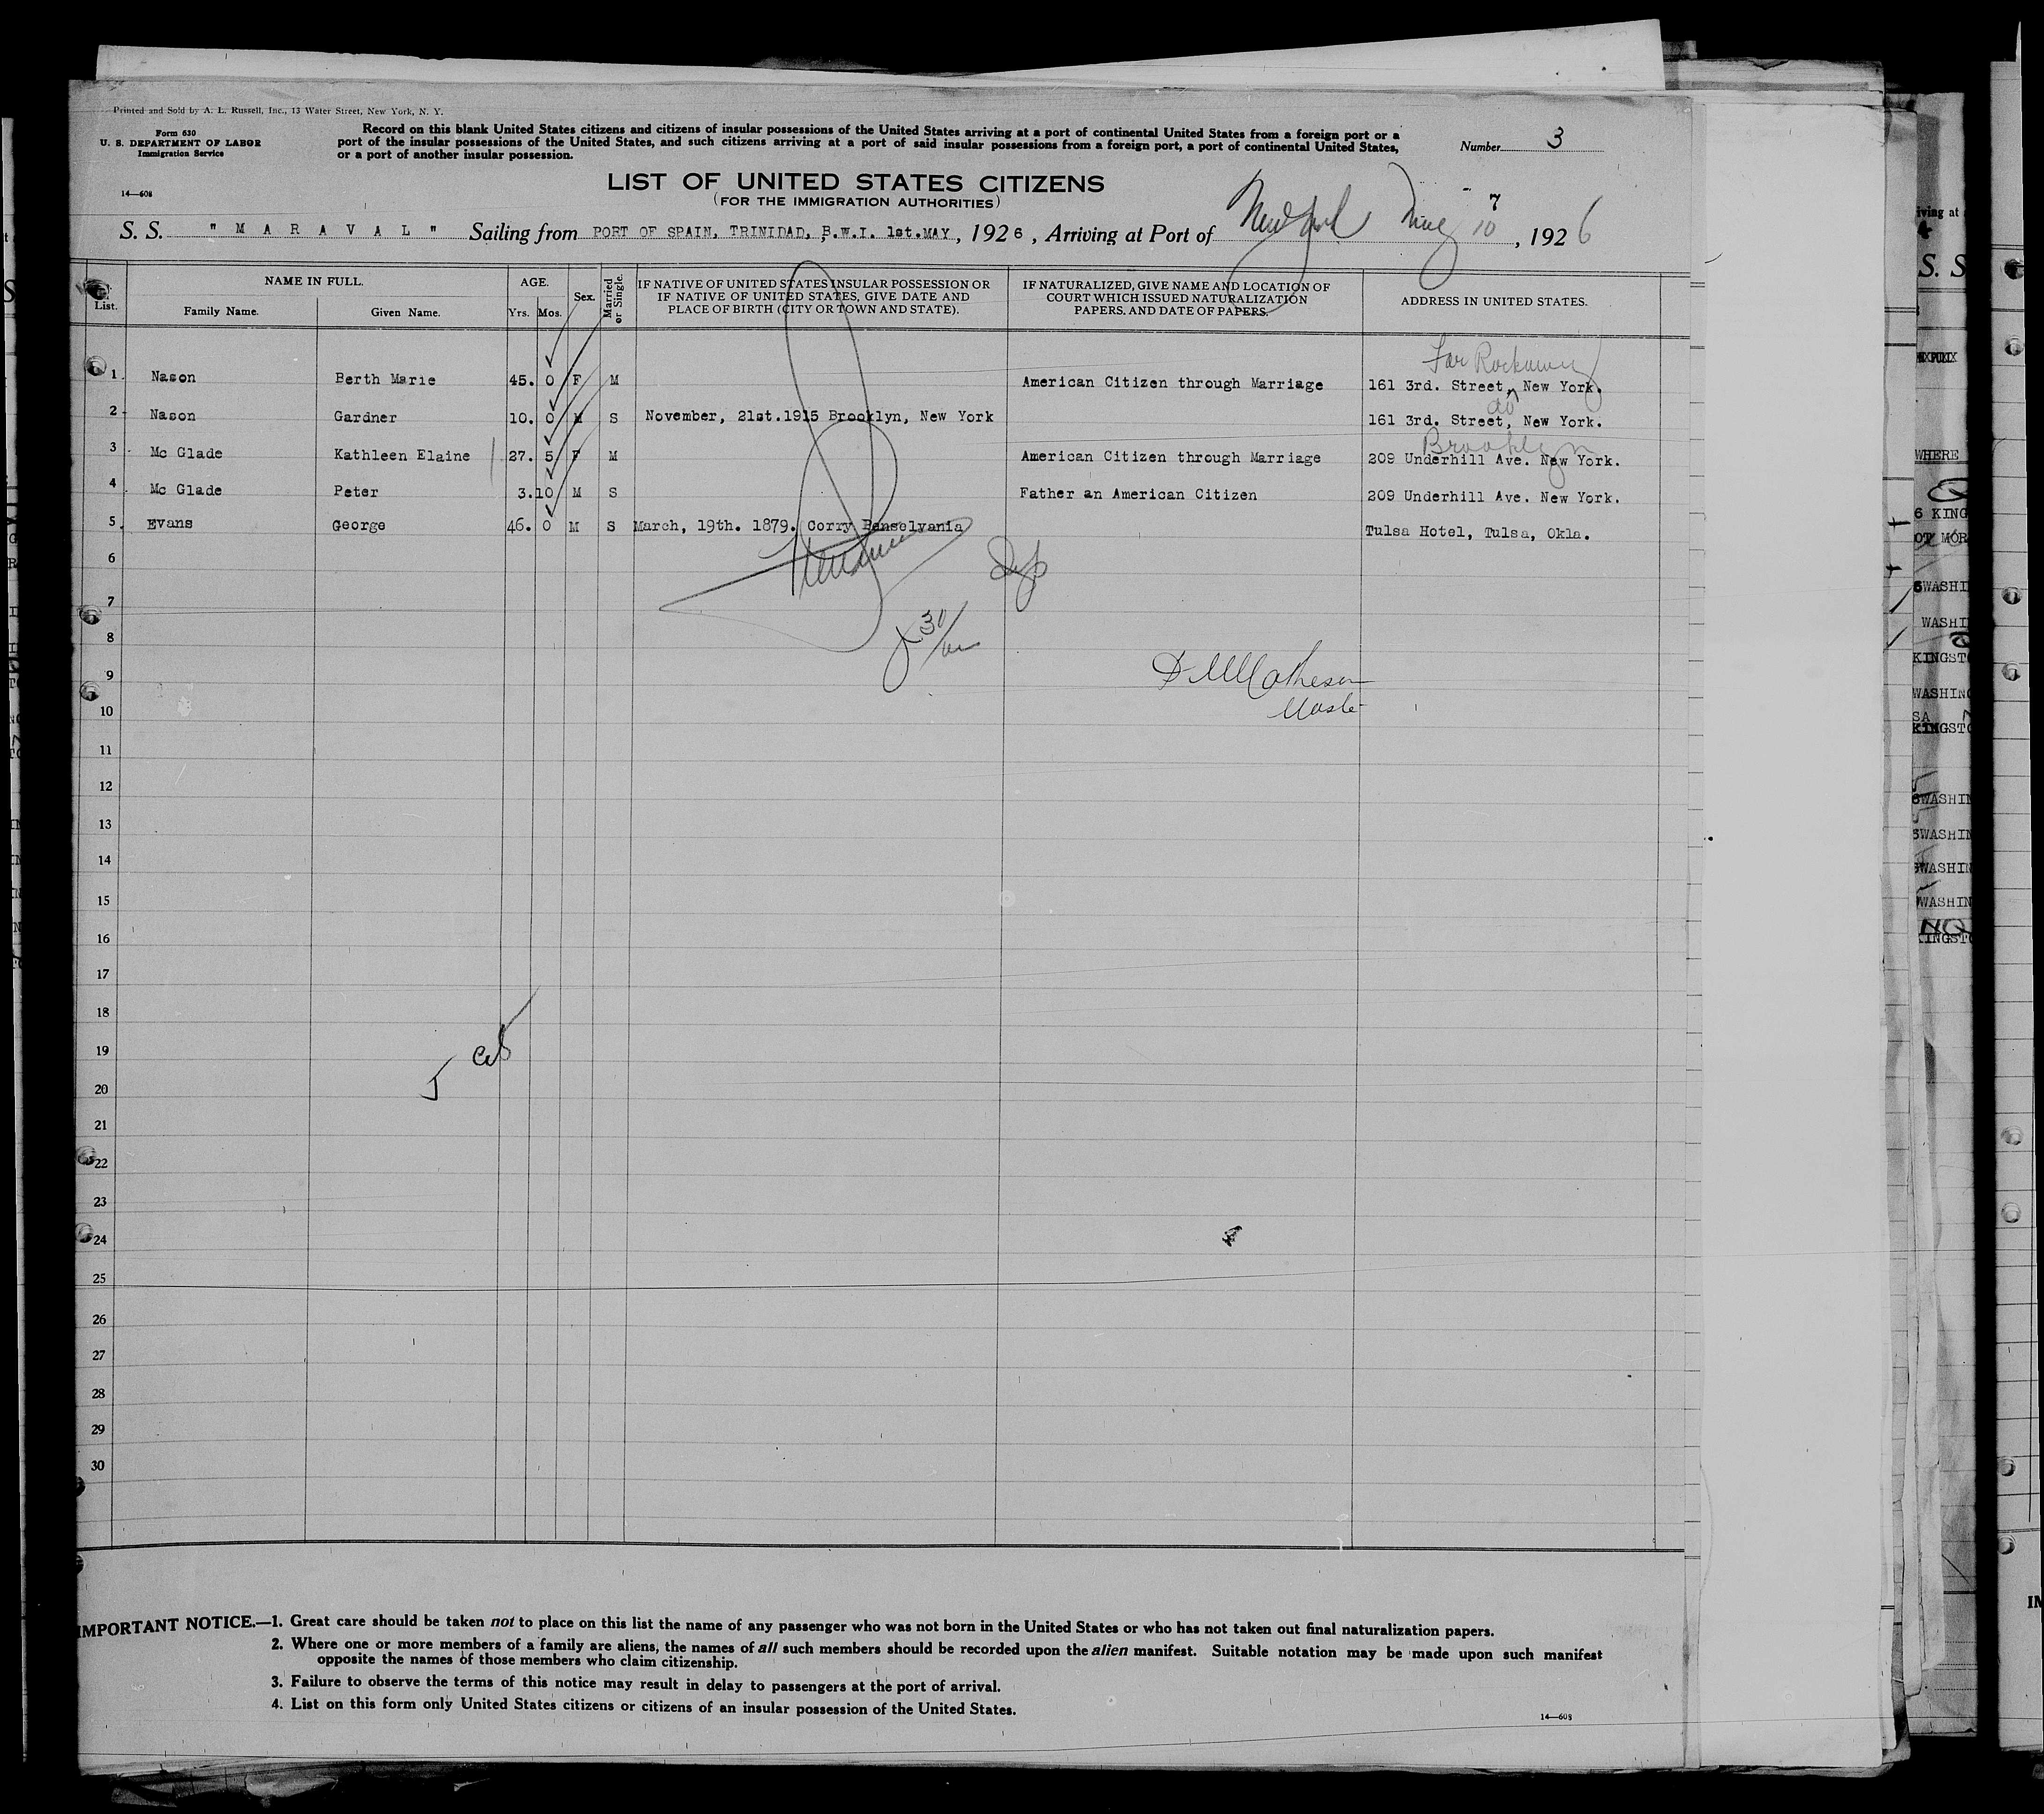 Printed and Sold by A. L. Russell, Inc., 13 Water Street, New York, N. Y.
Form 630
U. S. DEPARTMENT OF LABOR
Immigration Service
14—608
Record on this blank United States citizens and citizens of insular possessions of the United States arriving at a port of continental United States from a foreign port or a
port of the insular possessions of the United States, and such citizens arriving at a port of said insular possessions from a foreign port, a port of continental United States,
or a port of another insular possession.
Number 3
LIST OF UNITED STATES CITIZENS
(FOR THE IMMIGRATION AUTHORITIES)
7
S. S. "MARAVAL" Sailing from PORT OF SPAIN, TRINIDAD, B.W.I. 1st.MAY, 1926, Arriving at Port of New York May 10, 1926
List.
NAME IN FULL.
Family Name. Given Name.
AGE.
Yrs. Mos.
Sex.
Married or Single.
IF NATIVE OF UNITED STATES INSULAR POSSESSION OR
IF NATIVE OF UNITED STATES, GIVE DATE AND
PLACE OF BIRTH (CITY OR TOWN AND STATE).
IF NATURALIZED, GIVE NAME AND LOCATION OF
COURT WHICH ISSUED NATURALIZATION
PAPERS, AND DATE OF PAPERS.
ADDRESS IN UNITED STATES.
Far Rockaway
1 Nason Berth Marie 45. 0 F M American Citizen through Marriage 161 3rd. Street, New York.
do
2 Nason Gardner 10. 0 M S November, 21st.1915 Brooklyn, New York 161 3rd. Street, New York.
Brooklyn
3 Mc Glade Kathleen Elaine 27. 5 F M American Citizen through Marriage 209 Underhill Ave. New York.
4 Mc Glade Peter 3.10 M S Father an American Citizen 209 Underhill Ave. New York.
5 Evans George 46. 0 M S March, 19th. 1879. Corry Penselvania Tulsa Hotel, Tulsa, Okla.
6
7
8
9
D M Matheson
Master
10
11
12
13
14
15
16
17
18
19
20
21
22
23
24
25
26
27
28
29
30
IMPORTANT NOTICE.—1. Great care should be taken not to place on this list the name of any passenger who was not born in the United States or who has not taken out final naturalization papers.
2. Where one or more members of a family are aliens, the names of all such members should be recorded upon the alien manifest. Suitable notation may be made upon such manifest
opposite the names of those members who claim citizenship.
3. Failure to observe the terms of this notice may result in delay to passengers at the port of arrival.
4. List on this form only United States citizens or citizens of an insular possession of the United States.
14—608